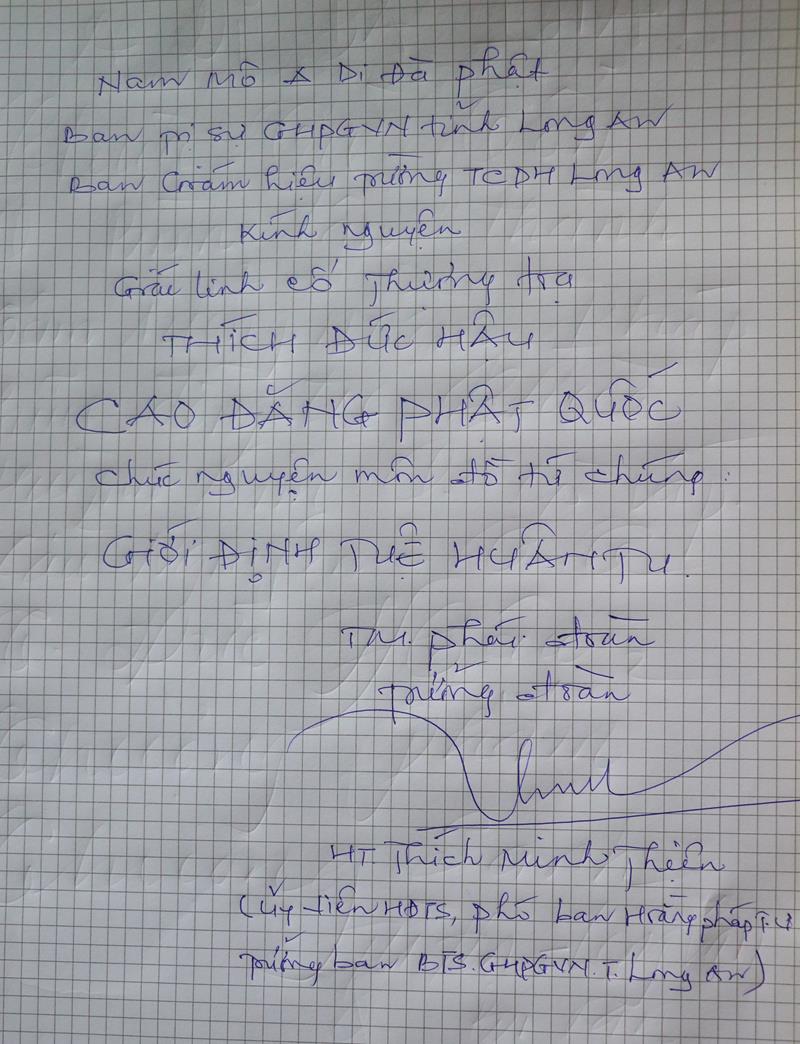 Nam mô A Di Đà Phật
Ban trị sự GHPGVN tỉnh Long An
Ban Giám hiệu trường TCPH Long An
Kính nguyện
Giác linh cố Thượng tọa
THÍCH ĐỨC HẬU
CAO ĐĂNG PHẬT QUỐC
Chúc nguyện môn đồ tứ chúng:
GIỚI ĐỊNH TUỆ HUÂN TU.
TM. phái đoàn
Trưởng đoàn
HT. Thích Minh Thiện
(Ủy viên HĐTS, phó ban Hoằng pháp T.Ư
Trưởng ban BTS.GHPGVN.T. Long An)